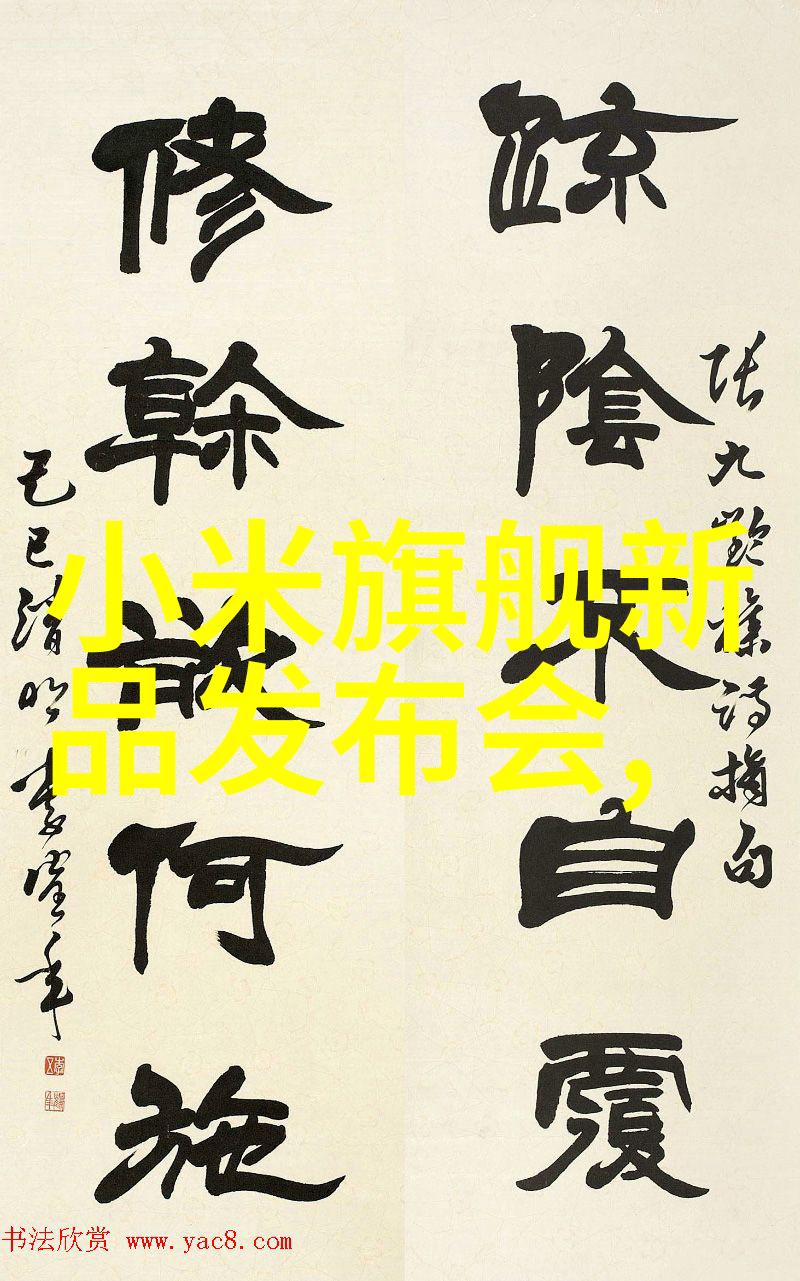 疏陰不自覆
修幹欲何施
張九齡集詩摘句
己巳清明
小米旗舰新
品发布会,
书法欣赏 www.yac8.com